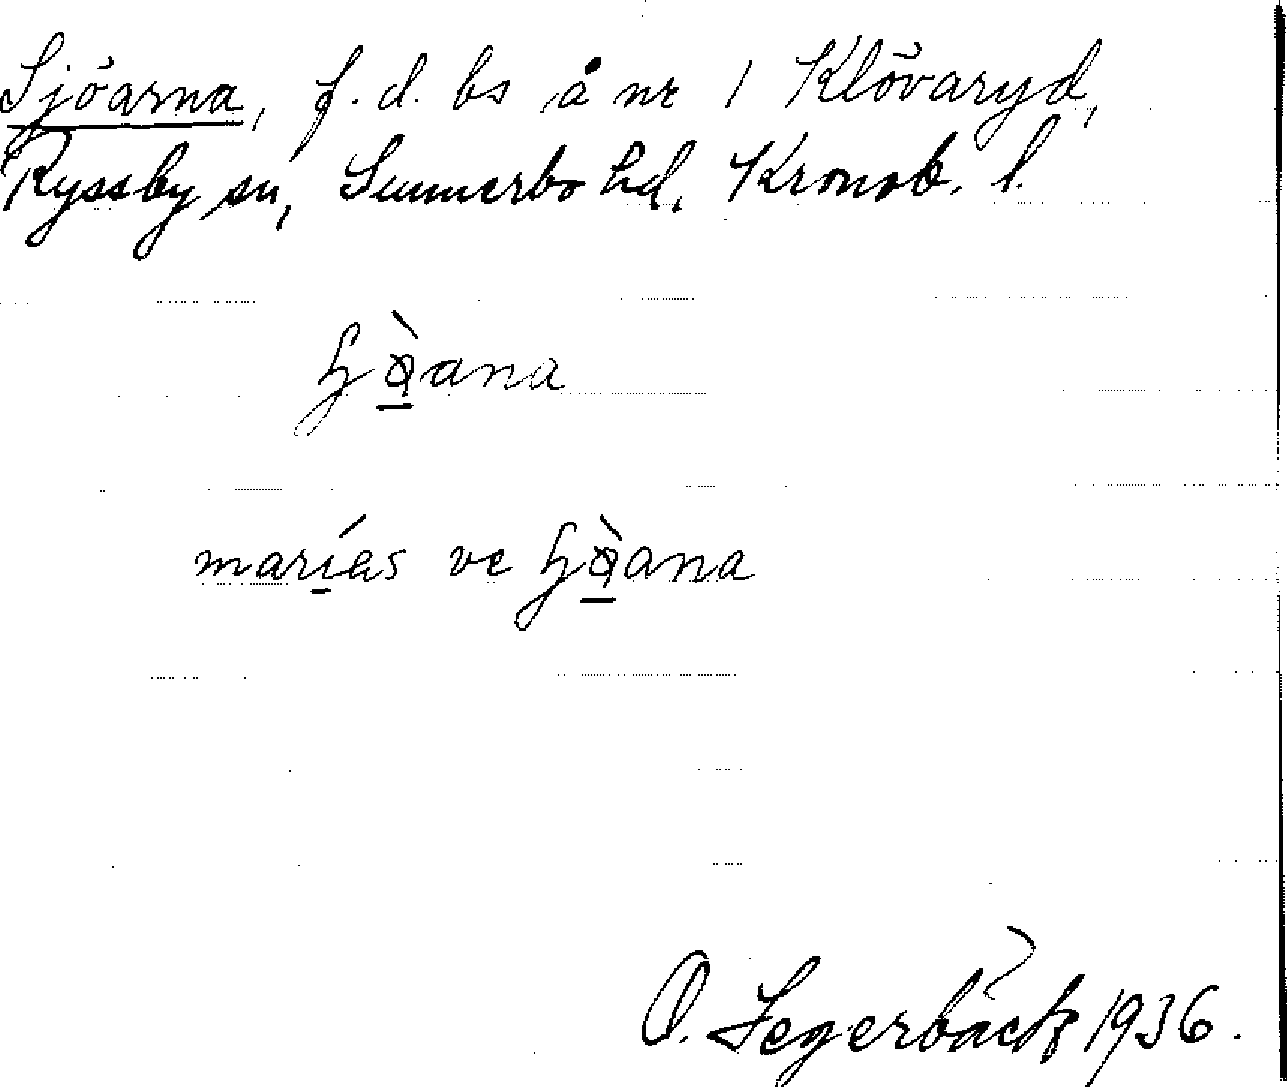 Sjöarna, f.d. bs å nr 1 Klövaryd,
Ryssby sn, Sunnerbo hd, Kronob. l.
ɧø̀ana
marías ve ɧø̀ana
O. Segerbäck 1936.